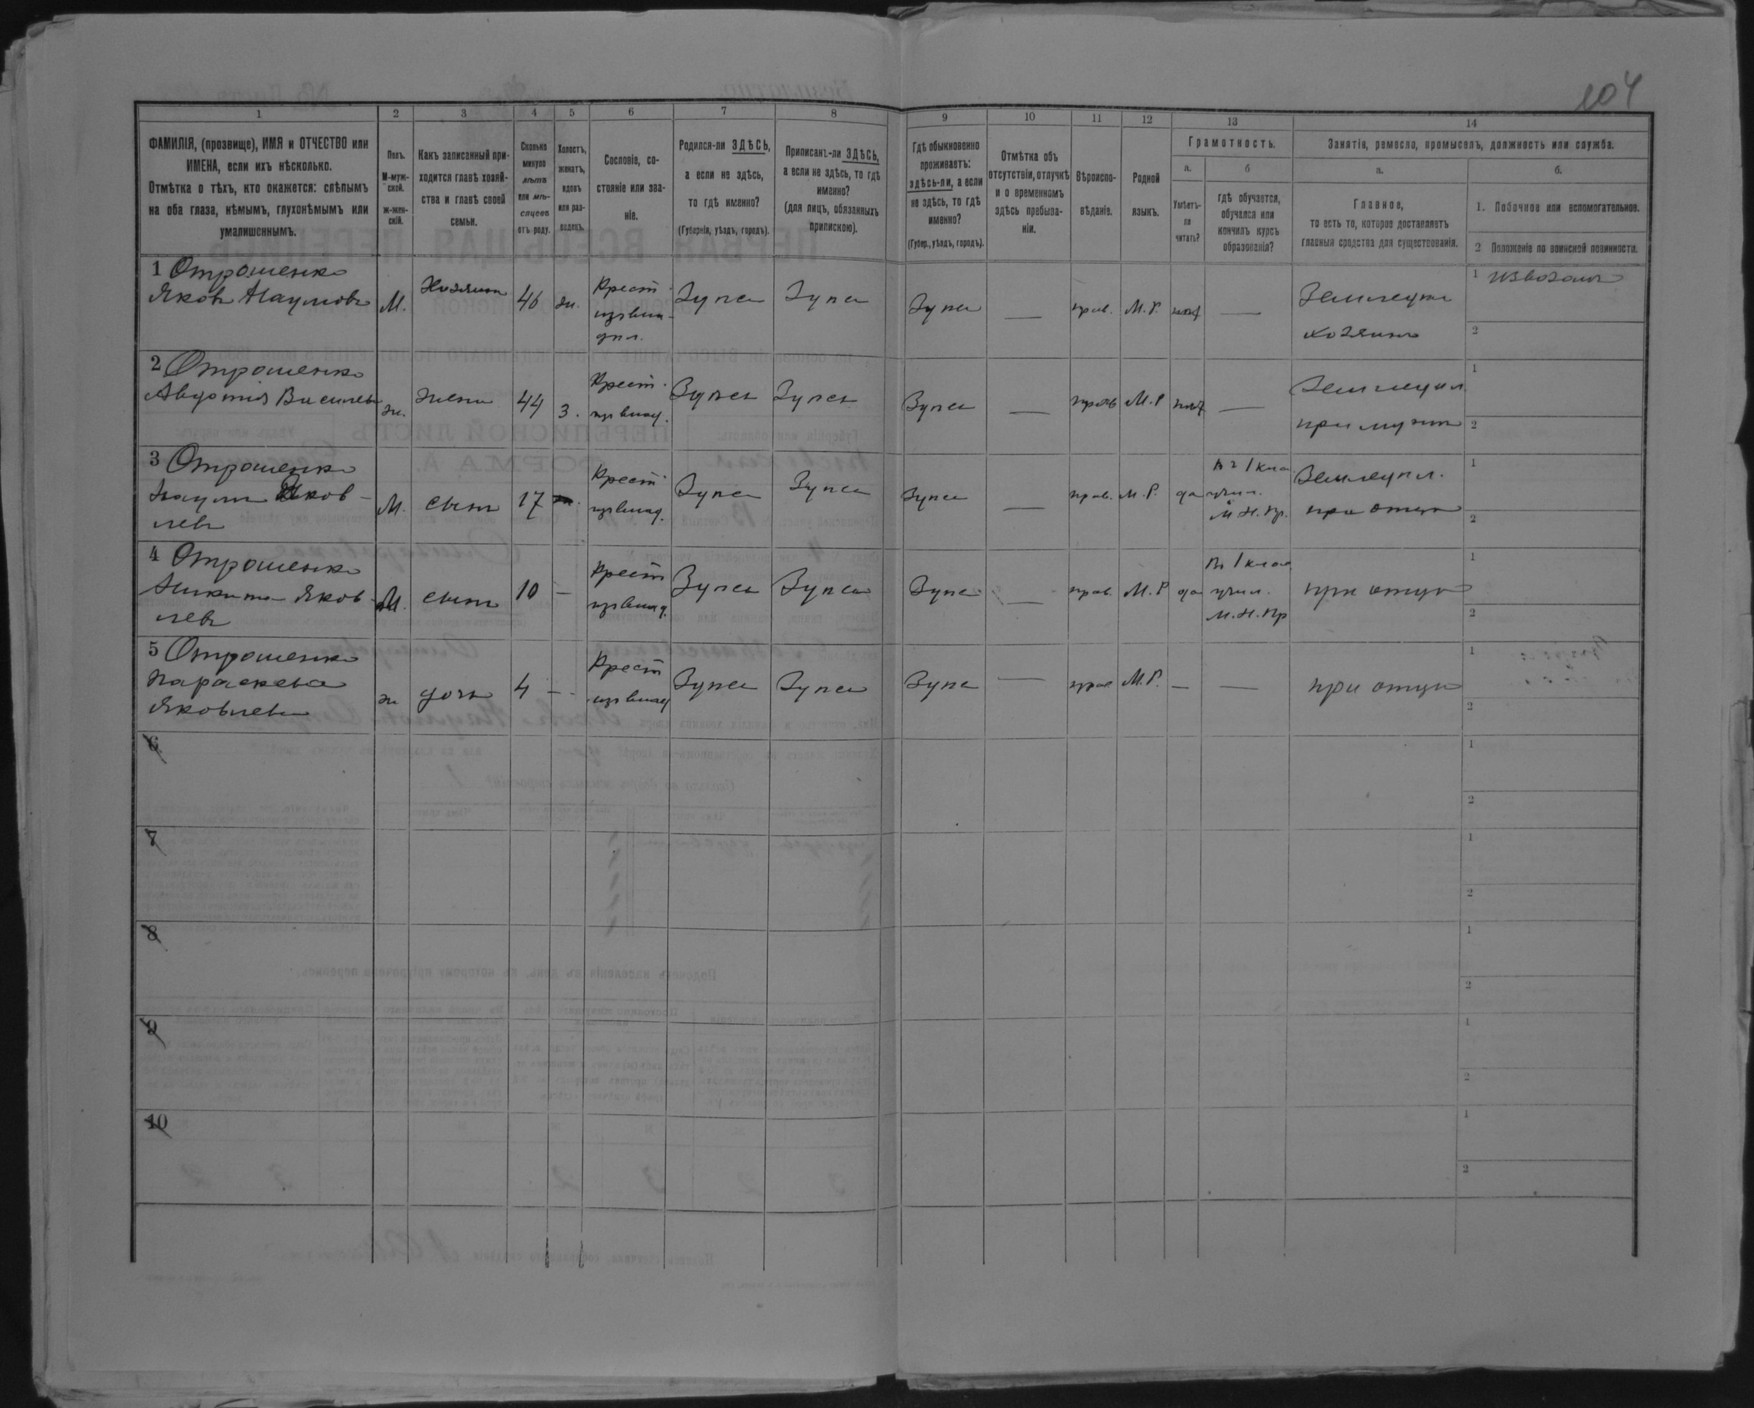 104
1
2
3
4
5
6
7
8
9
10
11
12
13
14
ФАМИЛІЯ, (прозвище), ИМЯ и ОТЧЕСТВО или
ИМЕНА, если ихъ нѣсколько.
Отмѣтка о тѣхъ, кто окажется: слѣпымъ
на оба глаза, нѣмымъ, глухонѣмымъ или
умалишеннымъ.
Полъ.
М-муж-
ской.
Ж-жен-
скій.
Какъ записанный при-
ходится главѣ хозяй-
ства и главѣ своей
семьи.
Сколько
минуло
лѣтъ
или мѣ-
сяцевъ
отъ роду.
Холостъ,
женатъ,
вдовъ
или раз-
веденъ.
Сословіе, со-
стояніе или зва-
ніе.
Родился-ли ЗДѢСЬ,
а если не здѣсь,
то гдѣ именно?
(Губернія, уѣздъ, городъ).
Приписанъ-ли ЗДѢСЬ,
а если не здѣсь, то гдѣ
именно?
(для лицъ, обязанныхъ
припискою).
Гдѣ обыкновенно
проживаетъ:
здѣсь-ли, а если
не здѣсь, то гдѣ
именно?
(Губер., уѣздъ, городъ).
Отмѣтка объ
отсутствіи, отлучкѣ
и о временномъ
здѣсь пребыва-
ніи.
Вѣроиспо-
вѣданіе.
Родной
языкъ.
Грамотность.
а.
Умѣетъ-
ли
читать?
б
гдѣ обучается,
обучался или
кончилъ курсъ
образованія?
Занятіе, ремесло, промыселъ, должность или служба.
а.
Главное,
то есть то, которое доставляетъ
главныя средства для существованія.
б.
1. Побочное или вспомогательное.
2 Положеніе по воинской повинности.
1 Отрошенко
Яковъ Наумовъ
М.
Хозяинъ
46
ж.
Крест.
изъ влад.
Зупса
Зупса
Зупса
—
прав.
М. Р.
нѣт
—
Земледѣл
хозяинъ
1 извозомъ
2
2 Отрошенко
Авдотія Василев
ж.
жена
44
З.
Крест.
изъ влад.
Зупса
Зупса
Зупса
—
прав
М. Р
нѣт
—
Земледѣл
при мужѣ
1
2
3 Отрошенко
Наумъ Яков-
левъ
М.
сынъ
17
Крест.
изъ влад.
Зупса
Зупса
Зупса
—
прав.
М. Р.
да
училищ.
М. Н. Пр.
Земледѣл.
при отцѣ
1
2
4 Отрошенко
Никита Яков-
левъ
М.
сынъ
10
—
Крест
изъ влад.
Зупса
Зупса
Зупса
—
прав
М. Р
да
въ 1 клас
учил.
М. Н. Пр
при отцѣ
1
2
5 Отрошенко
Параскева
Яковлева
ж
дочь
4
—
Крест
изъ влад
Зупса
Зупса
Зупса
—
прав
М. Р.
—
—
при отцѣ
1
2
6
1
2
7
1
2
8
1
2
9
1
2
10
1
2